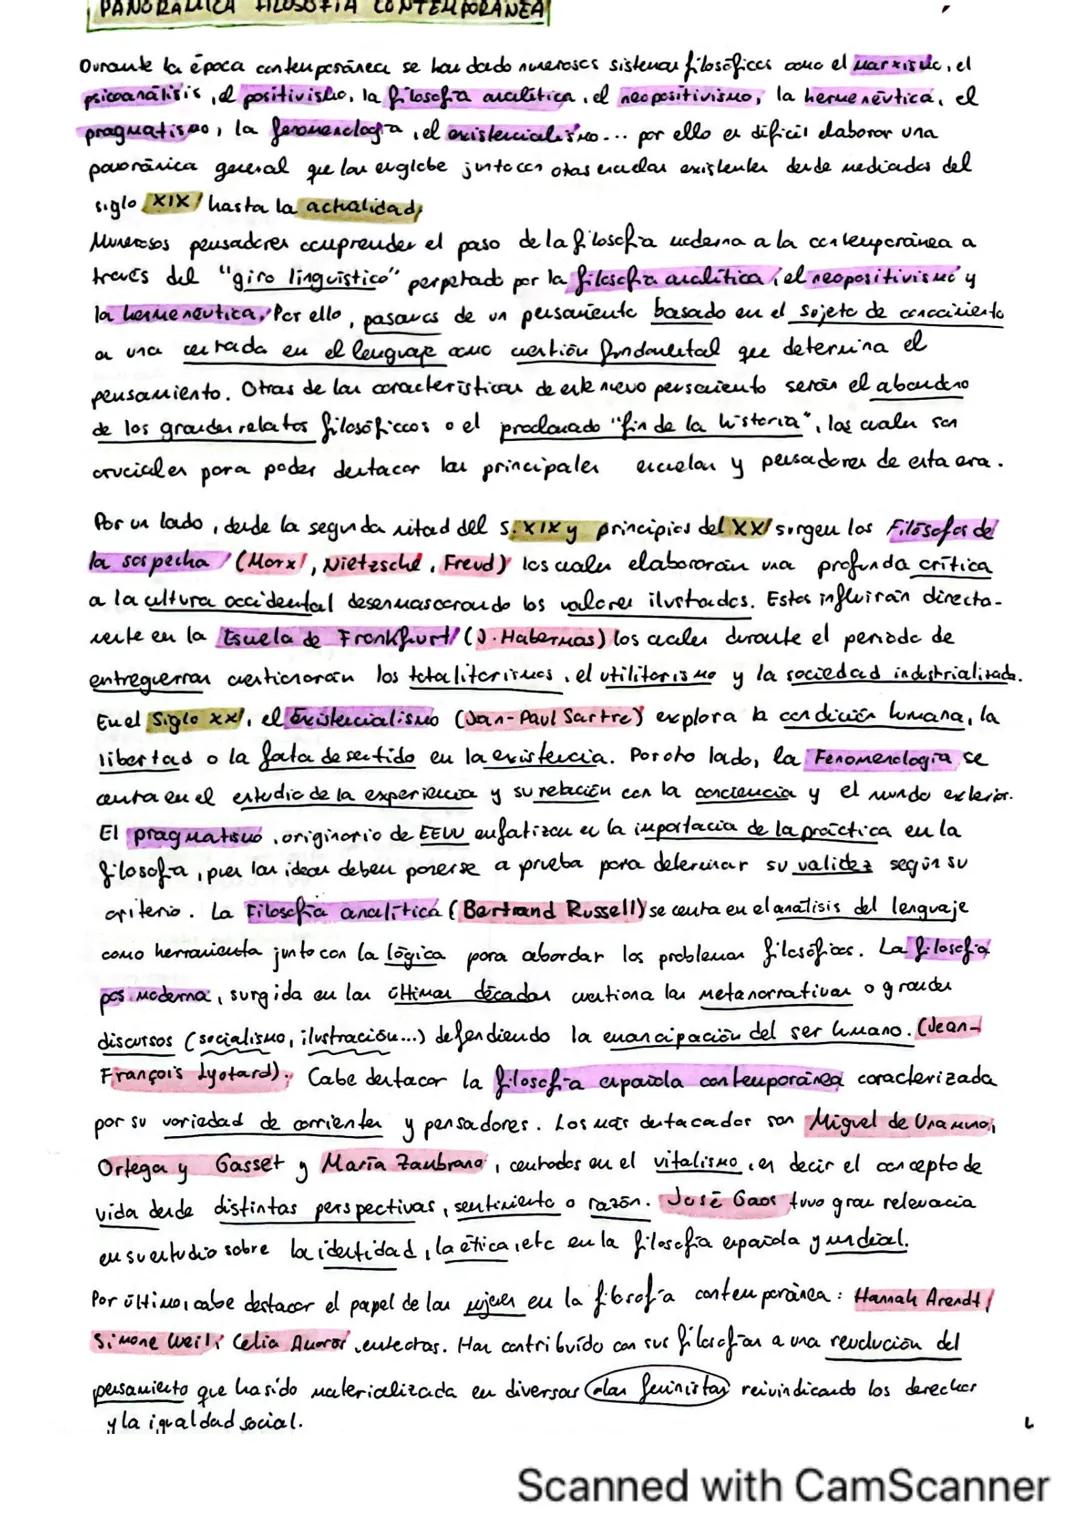 PANORÁMICA FILOSOFÍA CONTEMPORÁNEA
Durante la época contemporánea se han dado numerosos sistemas filosóficos como el marxismo, el
psicoanálisis, el positivismo, la filosofía analítica, el neopositivismo, la hermenéutica, el
pragmatismo, la fenomenología, el existencialismo... por ello es difícil elaborar una
panorámica general que los englobe junto con otras escuelas existentes desde mediados del
siglo XIX hasta la actualidad,
Numerosos pensadores comprenden el paso de la filosofía moderna a la contemporánea a
través del "giro lingüístico" perpetado por la filosofía analítica, el neopositivismo y
la hermenéutica. Por ello, pasamos de un pensamiento basado en el sujeto de conocimiento
a una centrada en el lenguaje como cuestión fundamental que determina el
pensamiento. Otras de las características de este nuevo pensamiento serán el abandono
de los grandes relatos filosóficos o el proclamado "fin de la historia", las cuales son
cruciales para poder destacar las principales escuelas y pensadores de esta era.
Por un lado, desde la segunda mitad del s. XIX y principios del XX surgen los Filósofos de
la sospecha (Marx, Nietzsche, Freud) los cuales elaborarán una profunda crítica
a la cultura occidental desenmascarando los valores ilustrados. Estos influirán directa-
mente en la Escuela de Frankfurt (J. Habermas) los cuales durante el periodo de
entreguerras cuestionarán los totalitarismos, el utilitarismo y la sociedad industrializada.
En el Siglo XX, el Existencialismo (Jean-Paul Sartre) explora la condición humana, la
libertad o la falta de sentido en la existencia. Por otro lado, la Fenomenología se
centra en el estudio de la experiencia y su relación con la conciencia y el mundo exterior.
El pragmatismo, originario de EEUU enfatizan en la importacia de la práctica en la
filosofía, pues las ideas deben ponerse a prueba para determinar su validez según su
criterio. La Filosofía analítica (Bertrand Russell) se centra en el análisis del lenguaje
como herramienta junto con la lógica para abordar los problemas filosóficos. La filosofía
posmoderna, surgida en las últimas décadas cuestiona las metanarrativas o grandes
discursos (socialismo, ilustración...) defendiendo la emancipación del ser humano. (Jean-
François Lyotard). Cabe destacar la filosofía española contemporánea caracterizada
por su variedad de corrientes y pensadores. Los más destacados son Miguel de Unamuno,
Ortega y Gasset y María Zambrano, centrados en el vitalismo, es decir el concepto de
vida desde distintas perspectivas, sentimiento o razón. José Gaos tuvo gran relevancia
en su estudio sobre la identidad, la ética, etc en la filosofía española y mundial.
Por último, cabe destacar el papel de las mujeres en la filosofía contemporánea: Hannah Arendt,
Simone Weil, Celia Amoros, entre otras. Han contribuído con sus filosofías a una revolución del
pensamiento que ha sido materializada en diversas olas feministas reivindicando los derechos
y la igualdad social.
Scanned with CamScanner